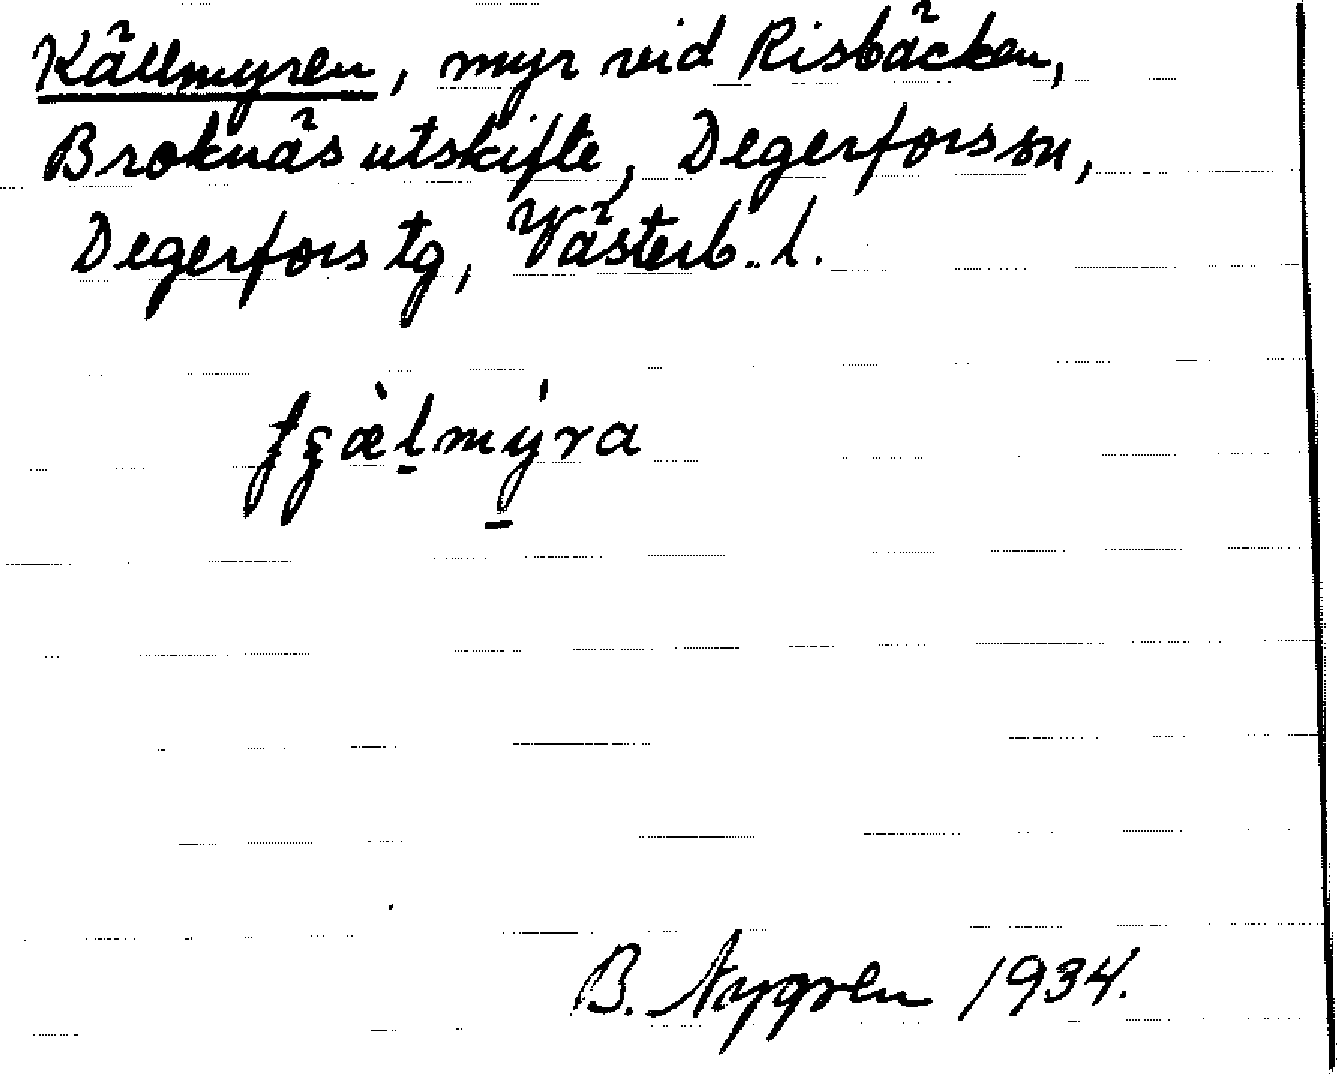 Källmyren, myr vid Risbäcken,
Broknäs utskifte, Degerfors sn,
Degerfors tg, Västerb. l.
B. Nygren 1934.